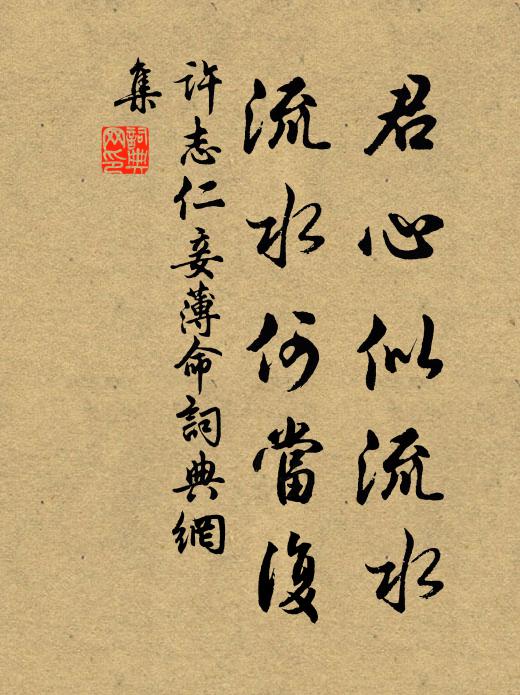 君心似流水
流水何當復
許志仁妾薄命詞典網
集
詞典
网印